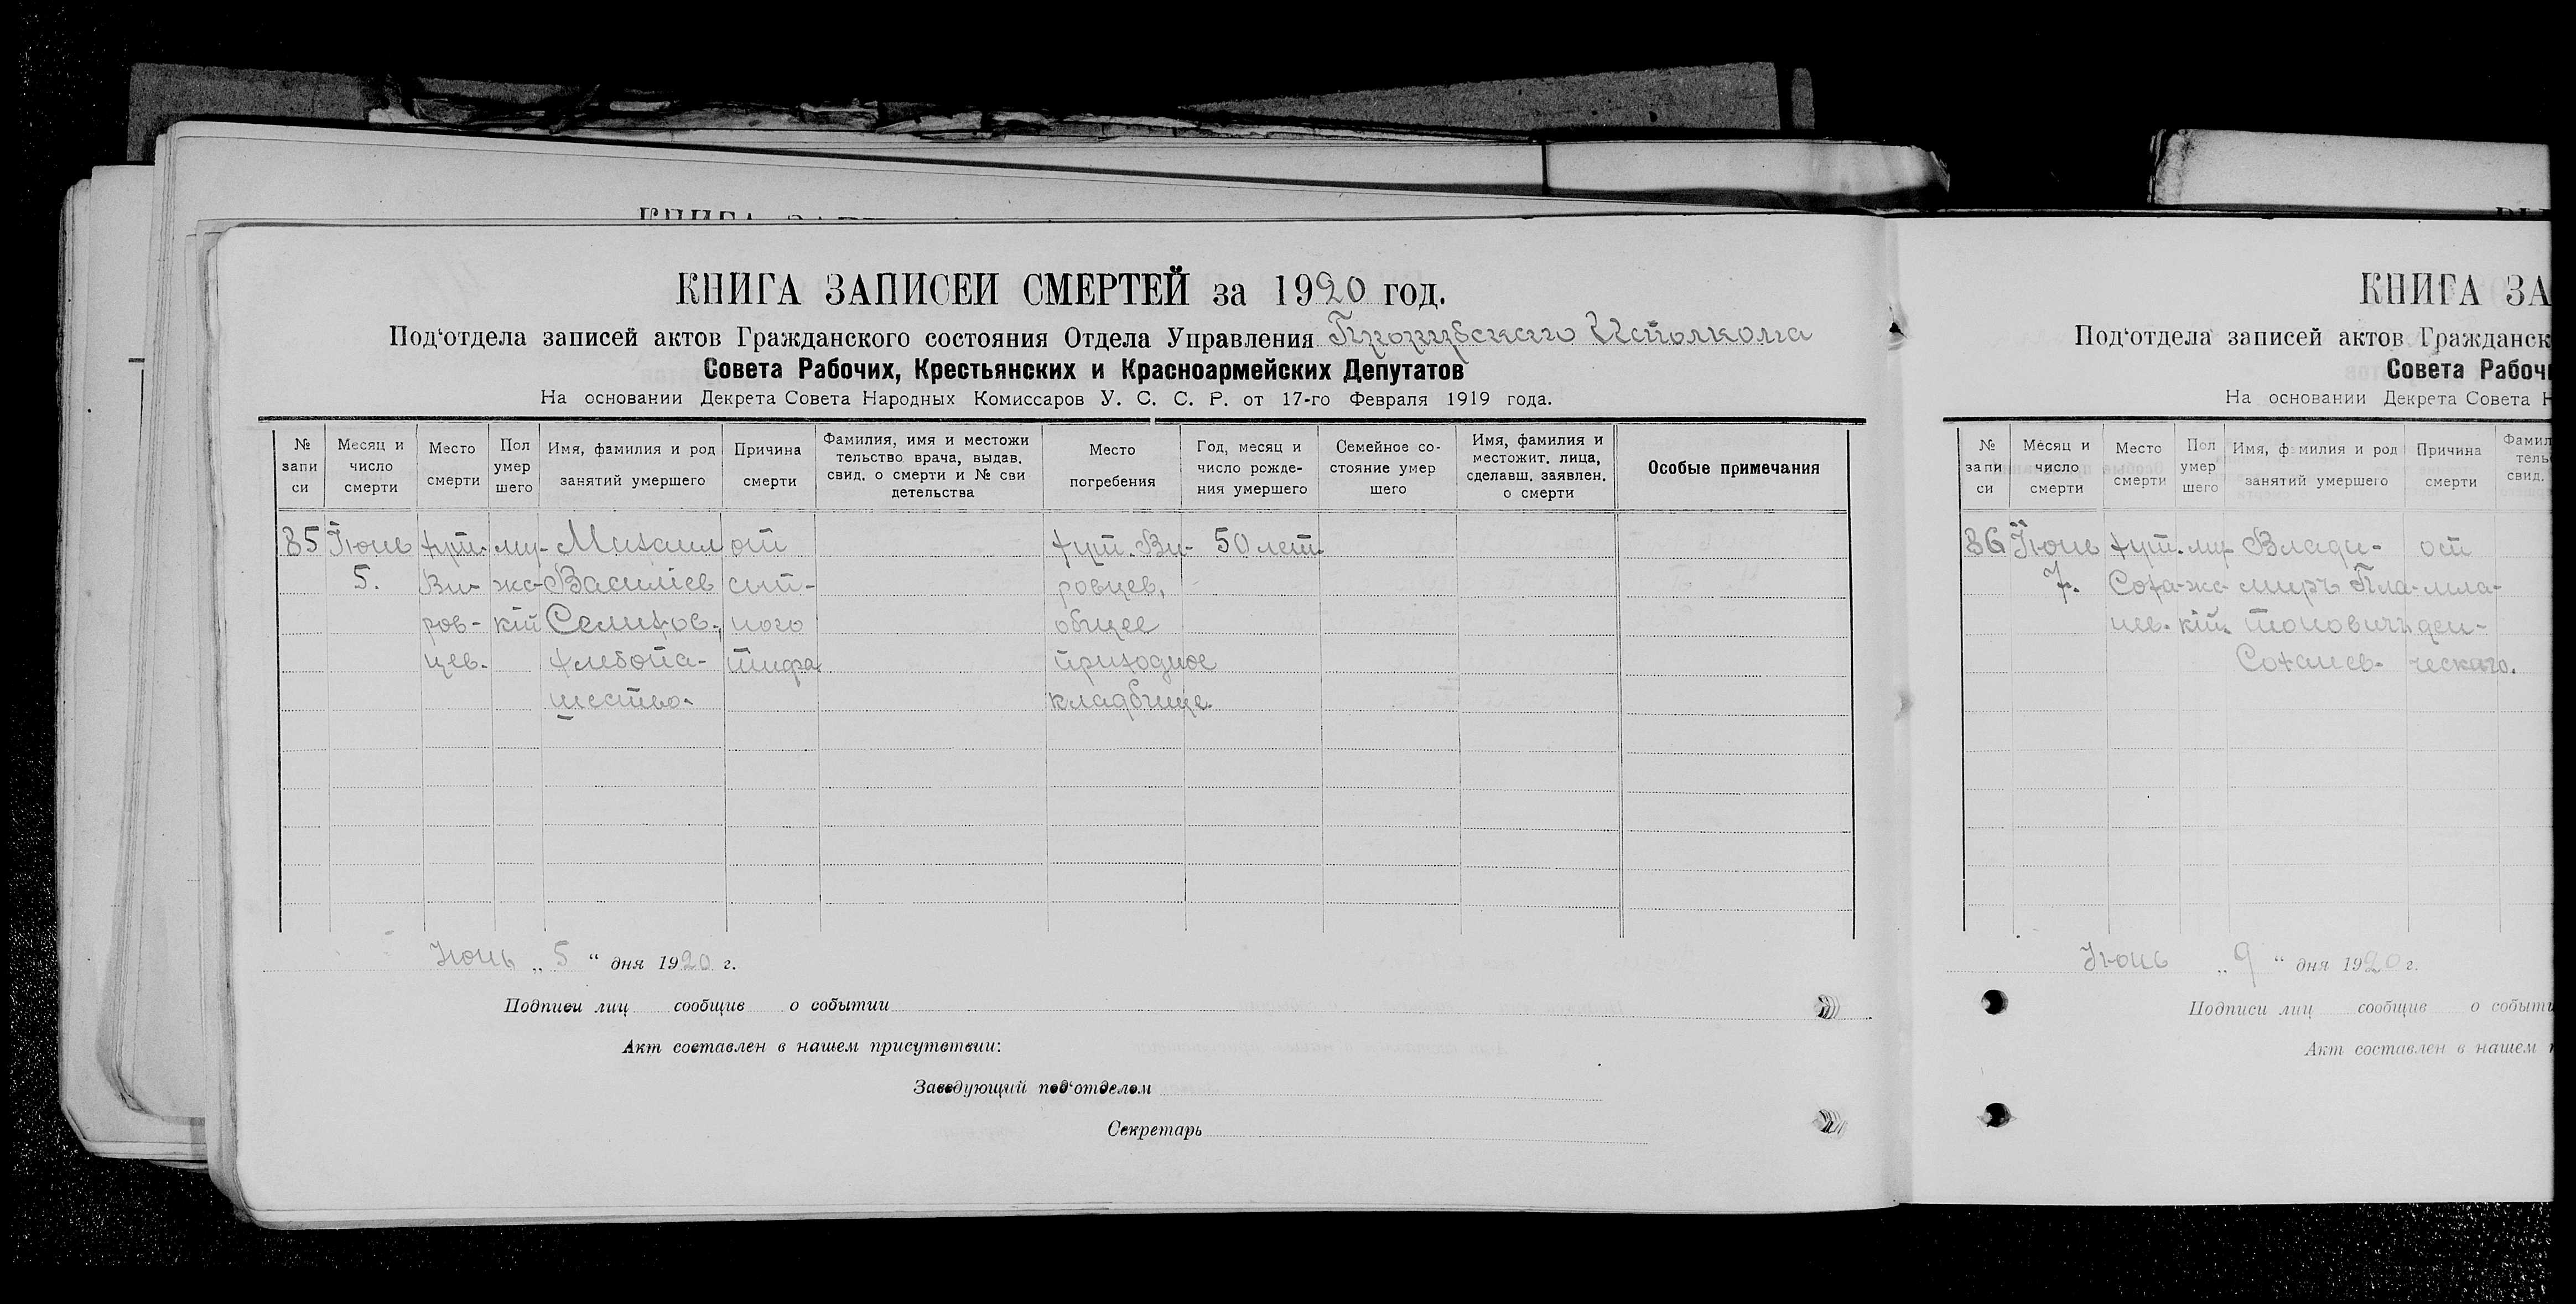 КНИГА ЗАПИСЕЙ СМЕРТЕЙ за 1920 год.
Под‘отдела записей актов Гражданского состояния Отдела Управления Исполкома
Совета Рабочих, Крестьянских и Красноармейских Депутатов
На основании Декрета Совета Народных Комиссаров У. С. С. Р. от 17-го Февраля 1919 года.
№ запи си
Месяц и число смерти
Место смерти
Пол умер шего
Имя, фамилия и род занятий умершего
Причина смерти
Фамилия, имя и местожи тельство врача, выдав. свид. о смерти и № сви детельства
Место погребения
Год, месяц и число рожде- ния умершего
Семейное со- стояние умер шего
Имя, фамилия и местожит. лица, сделавш. заявлен. о смерти
Особые примечания
85 Іюнь хут. му- Михаил от хут. Ви- 50 лет.
5. Ви- жс- Василіев сып- ровцев,
ров- кій Селихов., ного общее
цев. хлебопа- тифа приходное
шество. кладбище.
Июнь „ 5 “ дня 1920 г.
Подписи лиц сообщив о событии
Акт составлен в нашем присутствии:
Заведующий под‘отделом
Секретарь
КНИГА ЗА
Под‘отдела записей актов Гражданск
Совета Рабочи
На основании Декрета Совета Н
№ запи си
Месяц и число смерти
Место смерти
Пол умер шего
Имя, фамилия и род занятий умершего
Причина смерти
Фамил тель свид.
86 Іюнь хут. му- Влади- от
7. Соха- жс- миръ Пла- мла-
нев. кій. тоновичъ ден-
Соханев. ческаго.
Июнь „ 9 “ дня 1920 г.
Подписи лиц сообщив о событи
Акт составлен в нашем п